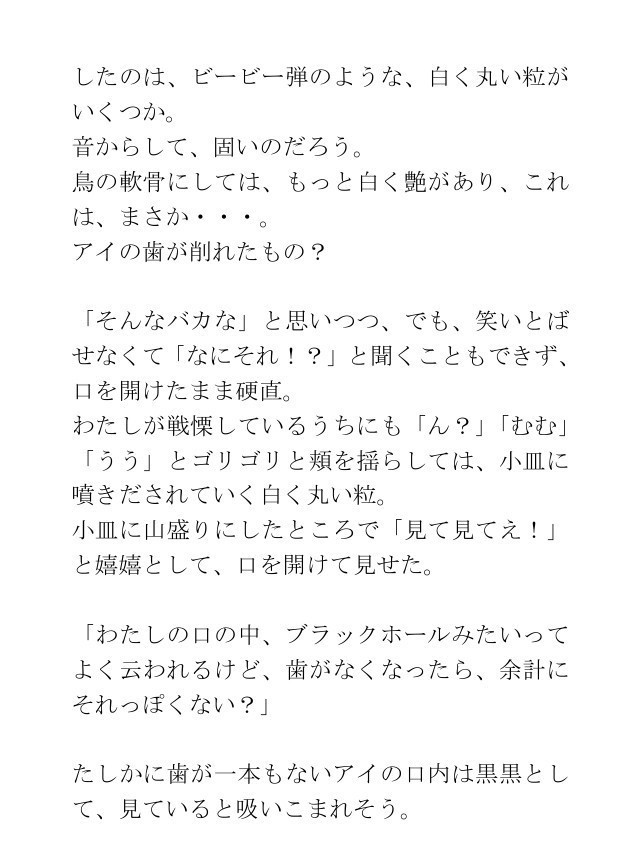 したのは、ビービー弾のような、白く丸い粒が
いくつか。
音からして、固いのだろう。
鳥の軟骨にしては、もっと白く艶があり、これ
は、まさか・・・。
アイの歯が削れたもの？
「そんなバカな」と思いつつ、でも、笑いとば
せなくて「なにそれ！？」と聞くこともできず、
口を開けたまま硬直。
わたしが戦慄しているうちにも「ん？」「むむ」
「うう」とゴリゴリと頬を揺らしては、小皿に
噴きだされていく白く丸い粒。
小皿に山盛りにしたところで「見て見てえ！」
と嬉嬉として、口を開けて見せた。
「わたしの口の中、ブラックホールみたいって
よく云われるけど、歯がなくなったら、余計に
それっぽくない？」
たしかに歯が一本もないアイの口内は黒黒とし
て、見ていると吸いこまれそう。